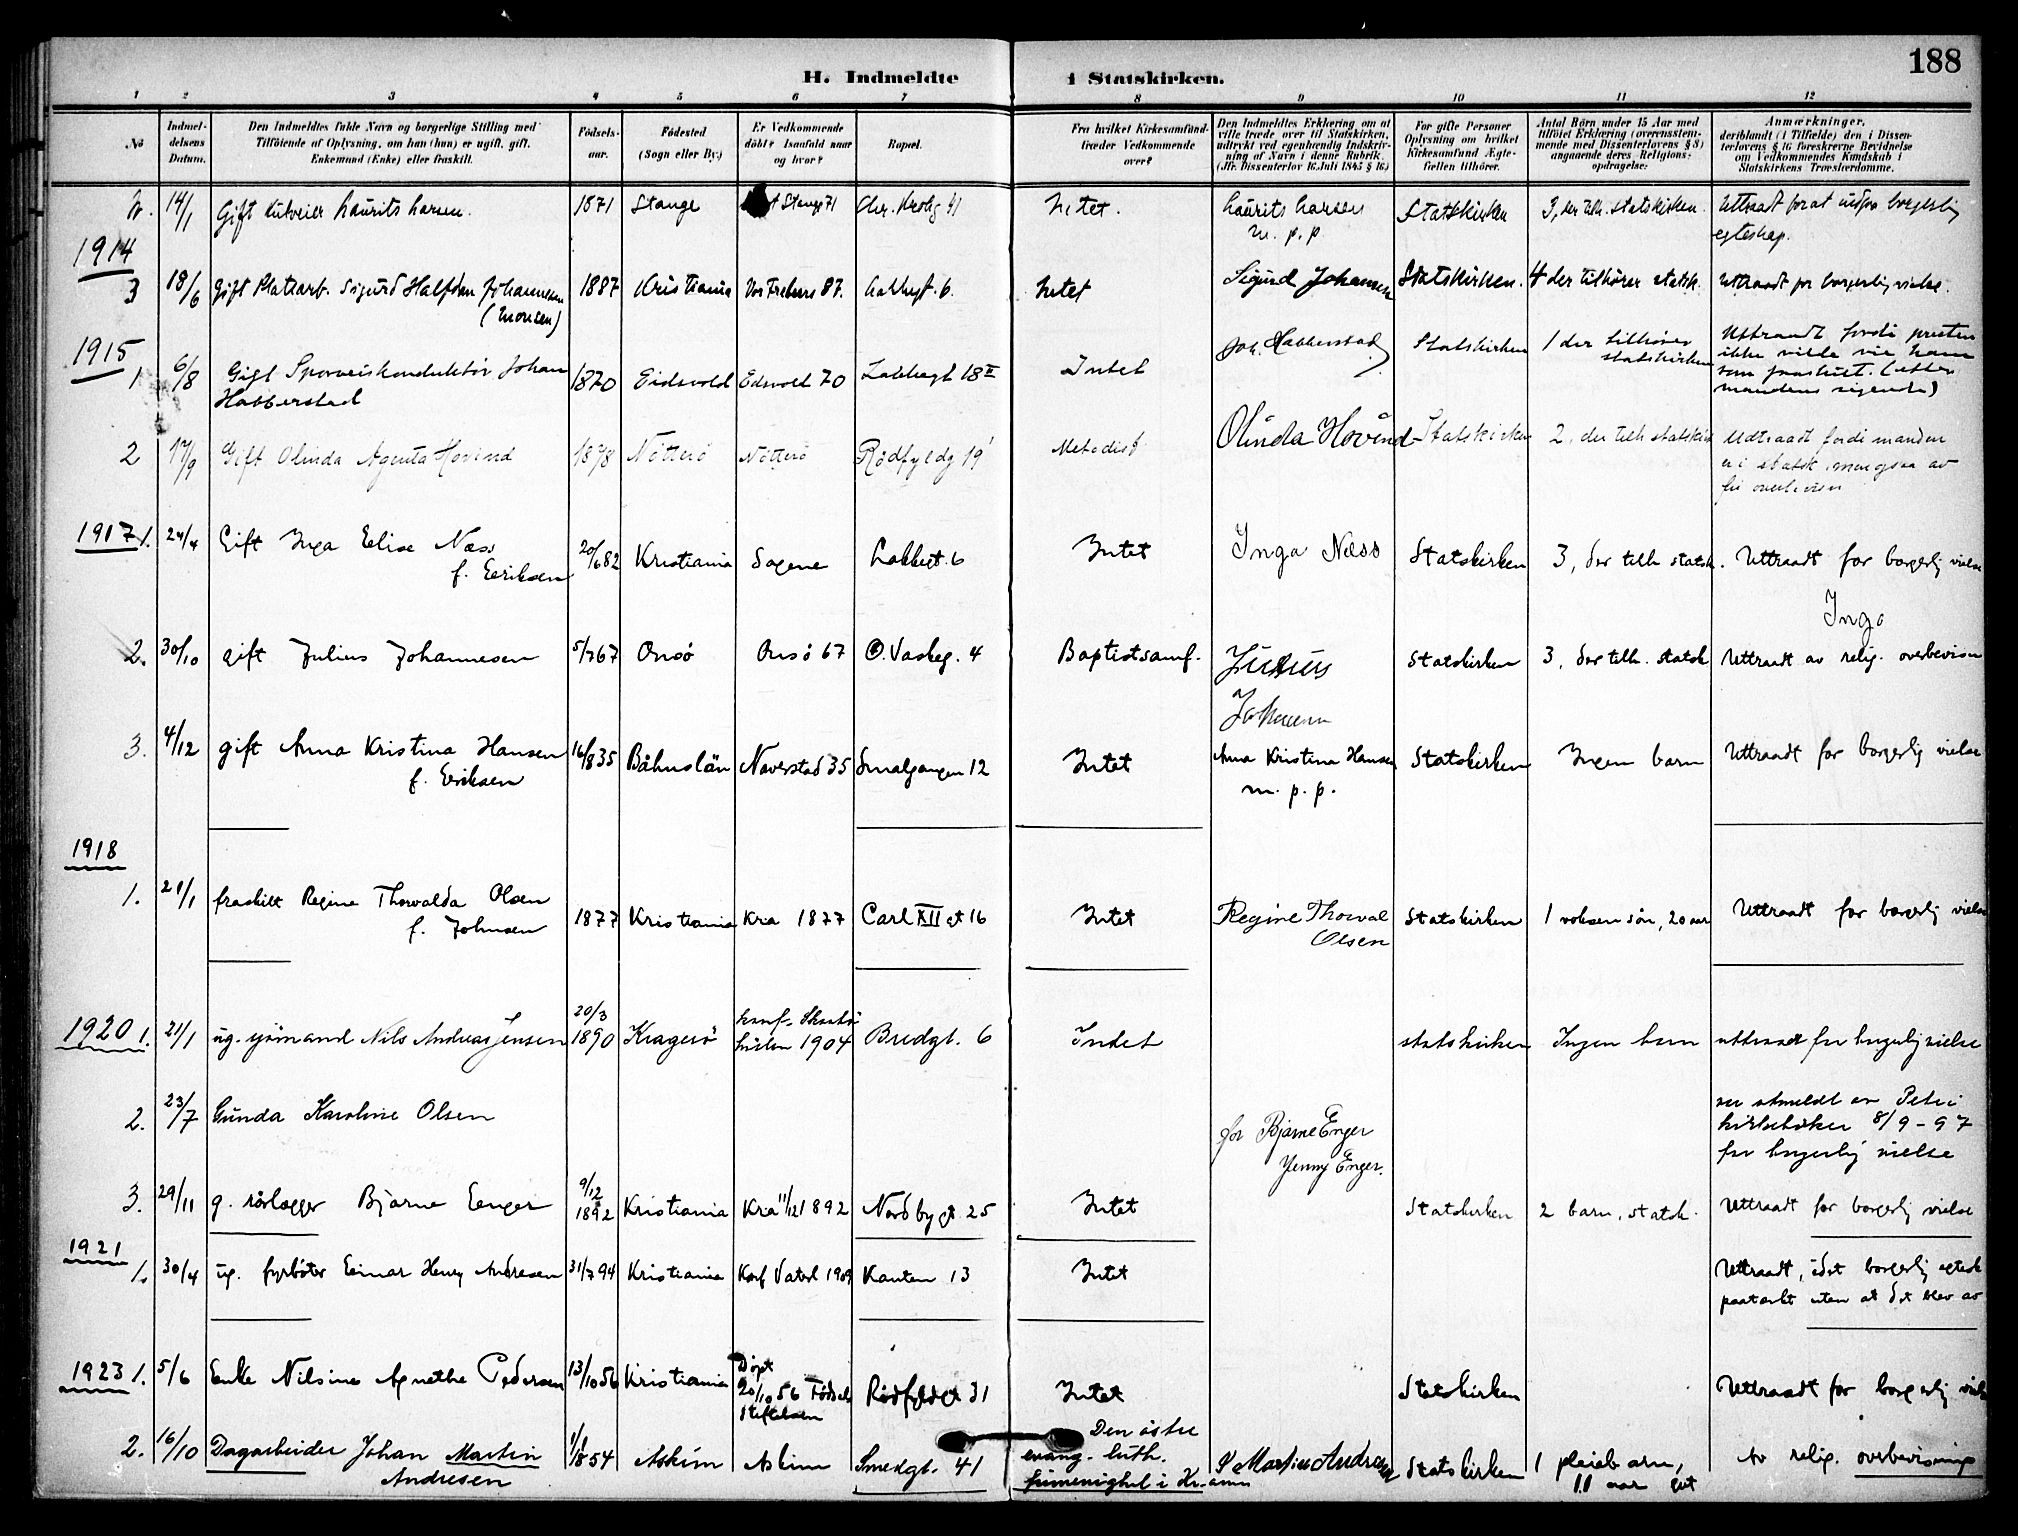 188
H. Indmeldte i Statskirken.
1 2 3 4 5 6 7 8 9 10 11 12
No
Indmeldelsens Datum.
Den Indmeldtes fulde Navn og borgerlige Stilling med
Tilföiende af Oplysning, om han (hun) er ugift, gift,
Enkemand (Enke) eller fraskilt.
Födselsaar.
Födested
(Sogn eller By.)
Er Vedkommende
döbt? Isaafald naar
og hvor?
Bopæl.
Fra hvilket Kirkesamfund
træder Vedkommende
over?
Den Indmeldtes Erklæring om at
ville træde over til Statskirken,
udtrykt ved egenhændig Indskrivning
af Navn i denne Rubrik
(Jfr. Dissenterlov 16 Juli 1845 § 16.)
For gifte Personer
Oplysning om hvilket
Kirkesamfund Ægtefællen
tilhörer.
Antal Börn under 15 Aar med
tilföiet Erklæring (overensstemmende
med Dissenterlovens § 8)
angaaende deres Religionsopdragelse:
Anmærkninger,
deriblandt (i Tilfælde) den i Dissenterlovens
§ 16 foreskrevne Bevidnelse
om Vedkommendes Kundskab i
Statskirkens Troeslærdomme.
14/1 Gift Laurits Larsen. 1871 Stange Stange 71 Chr. Krohg 41 Intet. Laurits Larsen Statskirken 3, der tilh. statskirken. Uttraadt for at indgaa borgerlig
m. p. p. egteskap.
1914
3 18/6 gift Platsarb. Sigurd Halfdan Johannesen 1887 Kristiania Vor Frelsers 87. Lakkegt. 6. Intet Sigurd Johansen Statskirken. 4 der tilhører statsk. Uttraadt for borgerlig vielse.
(Monsen)
1915
1. 6/8 Gift Sporveiskonduktör Johan 1870 Eidsvold Edsvold 70 Lakkegt 18 II Intet Joh. Habberstad Statskirken 1 der tilhører statskirken Uttraadt fordi presten
Habberstad ikke vilde vie ham
som fraskilt. (efter
mandens sigende)
2 17/9 Gift Olinda Agenta Hovind 1878 Nötterö Nötterö Rødfyldg 19 Metodist Olinda Hovind Statskirken 2, der tilh statskir Udtraadt fordi manden
er i statsk. men ogsaa av
fri overbevisn
1917 1. 24/4 Gift Inga Elise Næss 20/6 82 Kristiania Sagene Lakkegt. 6 Intet Inga Næss Statskirken 3, der tilh statsk. Uttraadt for borgerlig vielse
f. Eriksen
Inga
2. 30/10 gift Julius Johannesen 5/7 67 Onsö Onsö 67 Ø. Vaskeg. 4 Baptistsamf. Julius Statskirken 3, der tilh. statsk Uttraadt av relig. overbevisn
3. 4/12 gift Anna Kristina Hansen 16/8 35 Båhuslän Naverstad 35 Smalgangen 12 Intet Anna Kristina Hansen Statskirken Ingen barn Uttraadt for borgerlig vielse
f. Eriksen m. p. p.
1918
1. 21/1 fraskilt Regine Thorvalda Olsen 1877 Kristiania Kria 1877 Carl XII gt 16 Intet Regine Thorval Statskirken 1 voksen sön, 20 aar Uttraadt for borgerlig vielse
f. Johnsen Olsen
1920 1. 21/1 ug. sjömand Nils Andreas Jensen 20/3 1890 Kragerö konf. 1904 Bredgt. 6 Intet statskirken Ingen barn uttraadt for borgerlig vielse
2. 23/7 Gunda Karoline Olsen utmeldt av Petri
kirkebøker 8/9-97
for borgerlig vielse
for Bjarne Enger
Jenny Enger.
3. 29/11 g. rörlægger Bjarne Enger 9/12 1892 Kristiania Kria 11/12 1892 Nordbygt 25 Intet Statskirken 2 barn, statsk. Uttraadt for borgerlig vielse
1921
1. 30/4 ug. fyrböter Einar Henry Andresen 31/7 94 Kristiania Konf Vaterl 1909 Kanten 13 Intet Uttraadt, idet borgerlig egtesk
paatænkt uten at det blev av
1923 1. 5/6 Enke Nilsine Agnethe Pedersen 13/10 56 Kristiania Döpt 20/10 56 Födsels Stiftelsen Rødfyldgt 31 Intet Statskirken Uttraadt for borgerlig vielse
2. 16/10 Dagarbeider Johan Martin 1/18 54 Askim Askim Smedgt. 41 Den östre evang. luth. frimenighet i Kr.ania J Martin Andresen Statskirken 1 pleiebarn, Av relig. overbevisning
Andresen 11 aar gut